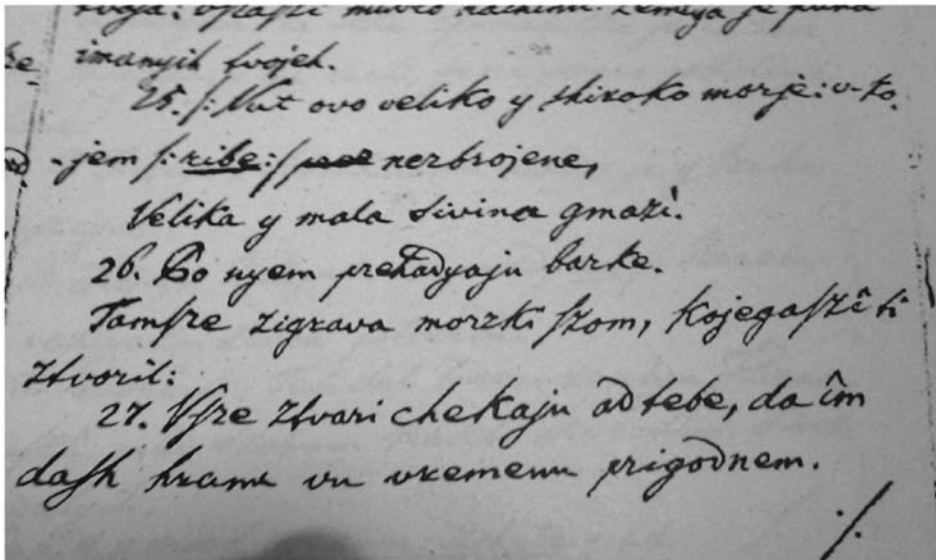 imanyih tvojeh.
25. /: Nut ovo veliko y shiroko morje: v-ko
-jem /: ribe :/ nezbrojene,
Velika y mala sivina gmazi.
26. Po nyem prehadyaju barke.
Tamſze zigrava morzki ſzom, kojegaſzi ti
ztvoril:
27. Vſze ztvari chekaju od tebe, da im
daſh hranu vu vremenu prigodnem.
./.